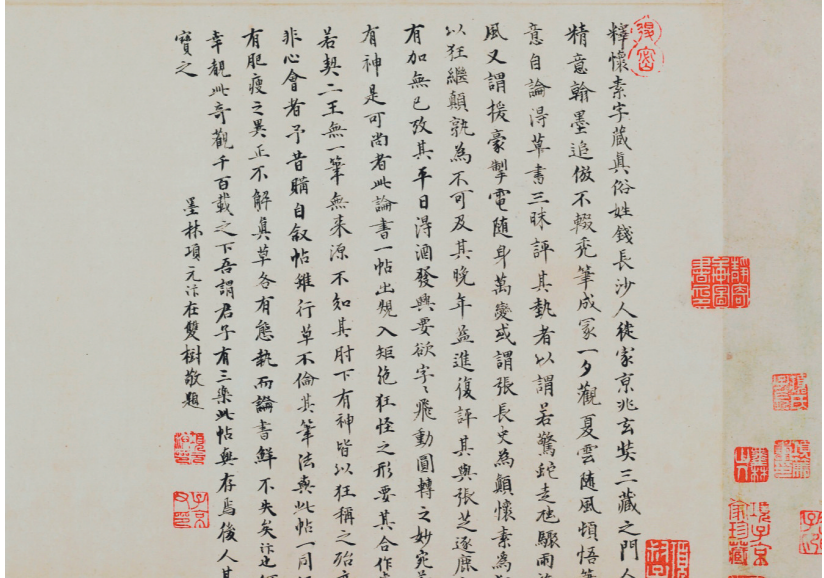 釋懷素字藏真俗姓錢長沙人徙家京兆玄奘三藏之門人
精意翰墨追倣不輟禿筆成冢一夕觀夏雲隨風頓悟筆
意自論得草書三昧評其埶者以謂若驚蛇走虺驟雨
風又謂援毫掣電隨身萬變或謂張長史為顛懷素為
以狂繼顛孰為不可及其晚年益進復評其與張芝逐鹿
有加無已攷其平日得酒發興要欲字〻飛動圓轉之妙宛
有神是可尚者此論書一帖出規入矩絕狂怪之形要其合作
若契二王無一筆無來源不知其肘下有神皆以狂稱之殆
非心會者予昔購自敘帖雖行草不倫其筆法與此帖一同
有肥瘦之異正不解真草各有態埶而論書鮮不失矣汴
幸覩此奇觀千百載之下吾謂君子有三樂此帖與存焉後人其
寶之
墨林項元汴在雙樹敬題
得密
子京
項子京
家珍藏